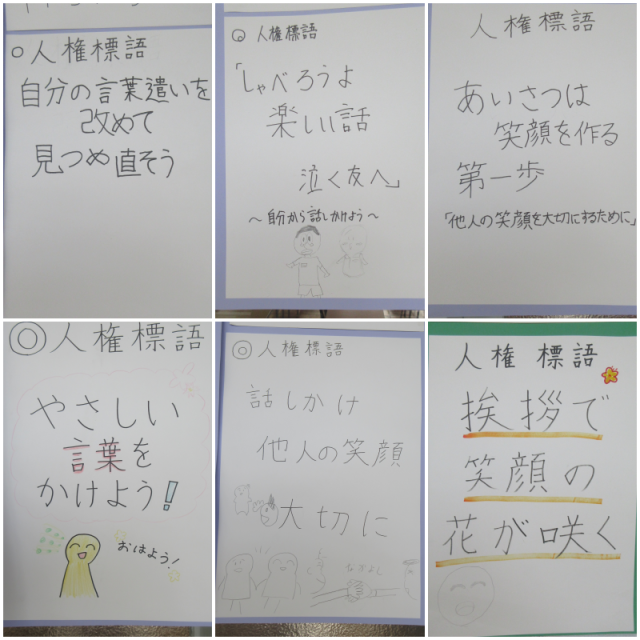 ○人権標語
自分の言葉遣いを
改めて
見つめ直そう
◎人権標語
「しゃべろうよ
楽しい話
泣く友へ」
～自分から話しかけよう～
人権標語
あいさつは
笑顔を作る
第一歩
「他人の笑顔を大切にするために」
◎人権標語
やさしい
言葉を
かけよう!
おはよう!
◎人権標語
話しかけ
他人の笑顔
大切に
なかよし
人権標語
挨拶で
笑顔の
花が咲く